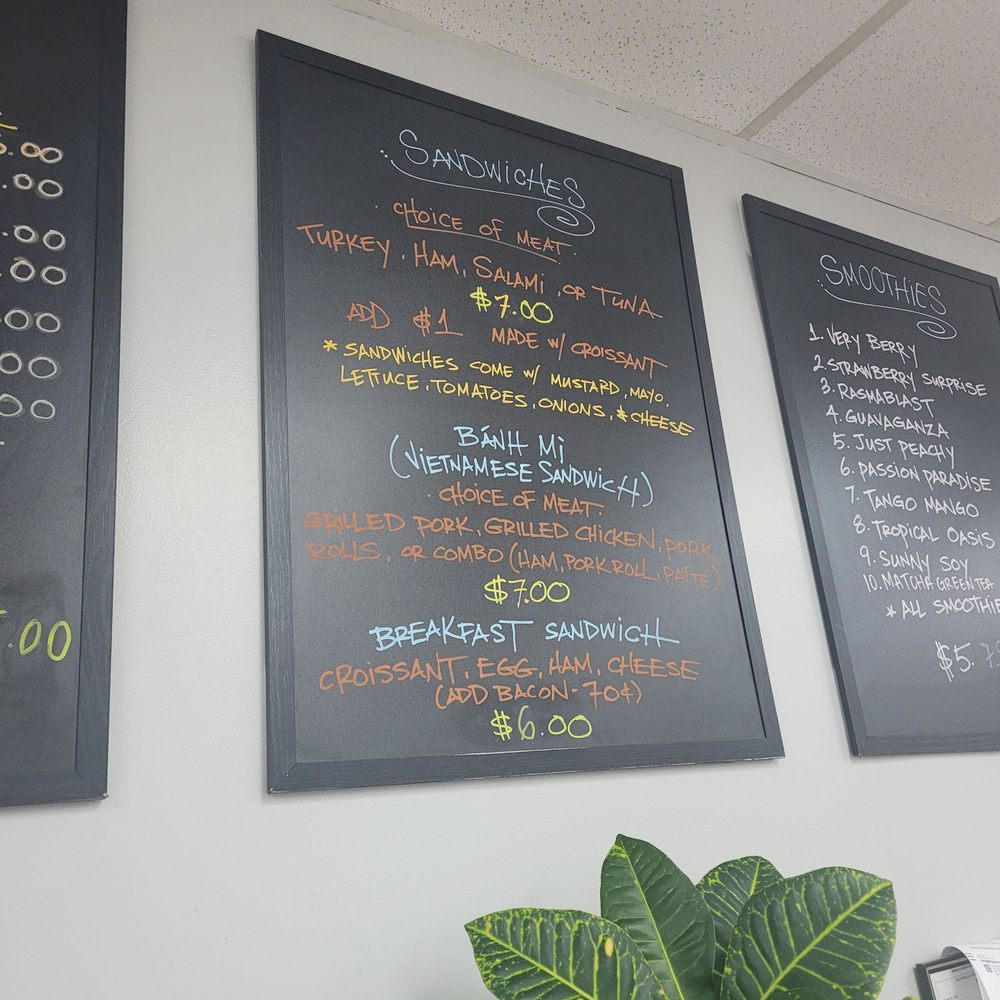 .00
.00
.00
.00
.00
.00
.00
.00
SANDWICHES
· CHOICE OF MEAT ·
TURKEY, HAM, SALAMI, OR TUNA
$7.00
ADD $1 MADE W/ CROISSANT
* SANDWICHES COME W/ MUSTARD, MAYO,
LETTUCE, TOMATOES, ONIONS, & CHEESE
BÁNH MÌ
(VIETNAMESE SANDWICH)
· CHOICE OF MEAT ·
GRILLED PORK, GRILLED CHICKEN, PORK
ROLLS, OR COMBO (HAM, PORK ROLL, PATTÉ)
$7.00
BREAKFAST SANDWICH
CROISSANT, EGG, HAM, CHEESE
(ADD BACON - 70¢)
$6.00
SMOOTHIES
1. VERY BERRY
2. STRAWBERRY SURPRISE
3. RASMABLAST
4. GUAVAGANZA
5. JUST PEACHY
6. PASSION PARADISE
7. TANGO MANGO
8. TROPICAL OASIS
9. SUNNY SOY
10. MATCHA GREEN TEA
* ALL SMOOTHIE
$5.7